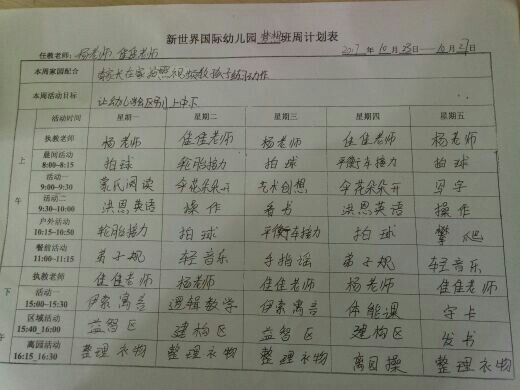 新世界国际幼儿园梦想班周计划表
任教老师：杨老师 佳佳老师 2017年10月23日——10月27日
本周家园配合 家长在家按照视频教孩子练习动作
本周活动目标 让幼儿学会区别上中下
活动时间 星期一 星期二 星期三 星期四 星期五
上午
执教老师 杨老师 佳佳老师 杨老师 佳佳老师 杨老师
晨间活动 8:00–8:15 拍球 轮胎接力 拍球 平衡车接力 拍球
活动一 9:00–9:30 蒙氏阅读 朵花朵朵开 艺术创想 朵花朵朵开 写字
活动二 9:30–10:00 洪恩英语 操作 看书 洪恩英语 操作
户外活动 10:15–10:50 轮胎接力 拍球 平衡车接力 拍球 攀爬
餐前活动 11:00–11:15 弟子规 轻音乐 手指谣 弟子规 轻音乐
下午
执教老师 佳佳老师 杨老师 佳佳老师 杨老师 佳佳老师
活动一 15:00–15:30 伊索寓言 逻辑数学 伊索寓言 体能课 字卡
区域活动 15:40_16:00 益智区 建构区 益智区 建构区 发书
离园活动 16:15_16:30 整理衣物 整理衣物 整理衣物 离园操 整理衣物